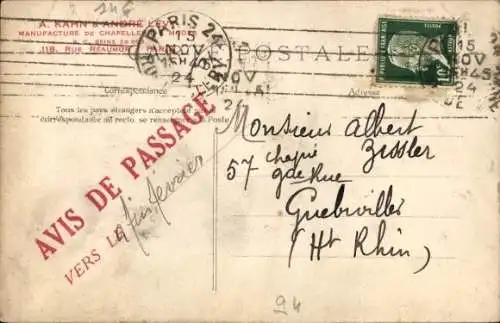 A. KAHN & ANDRÉ LÉVY
MANUFACTURE DE CHAPELLERIE
118, RUE RÉAUMUR, PARIS
PARIS
15
NOV
24
POSTALE
Correspondance
Adresse
Tous les pays étrangers n'acceptent
correspondance au recto, se renseigner Poste
AVIS DE PASSAGE
VERS LE
fin février
Monsieur Albert
Zissler
57 gde Rue
Guebwiller
(Ht Rhin)
24